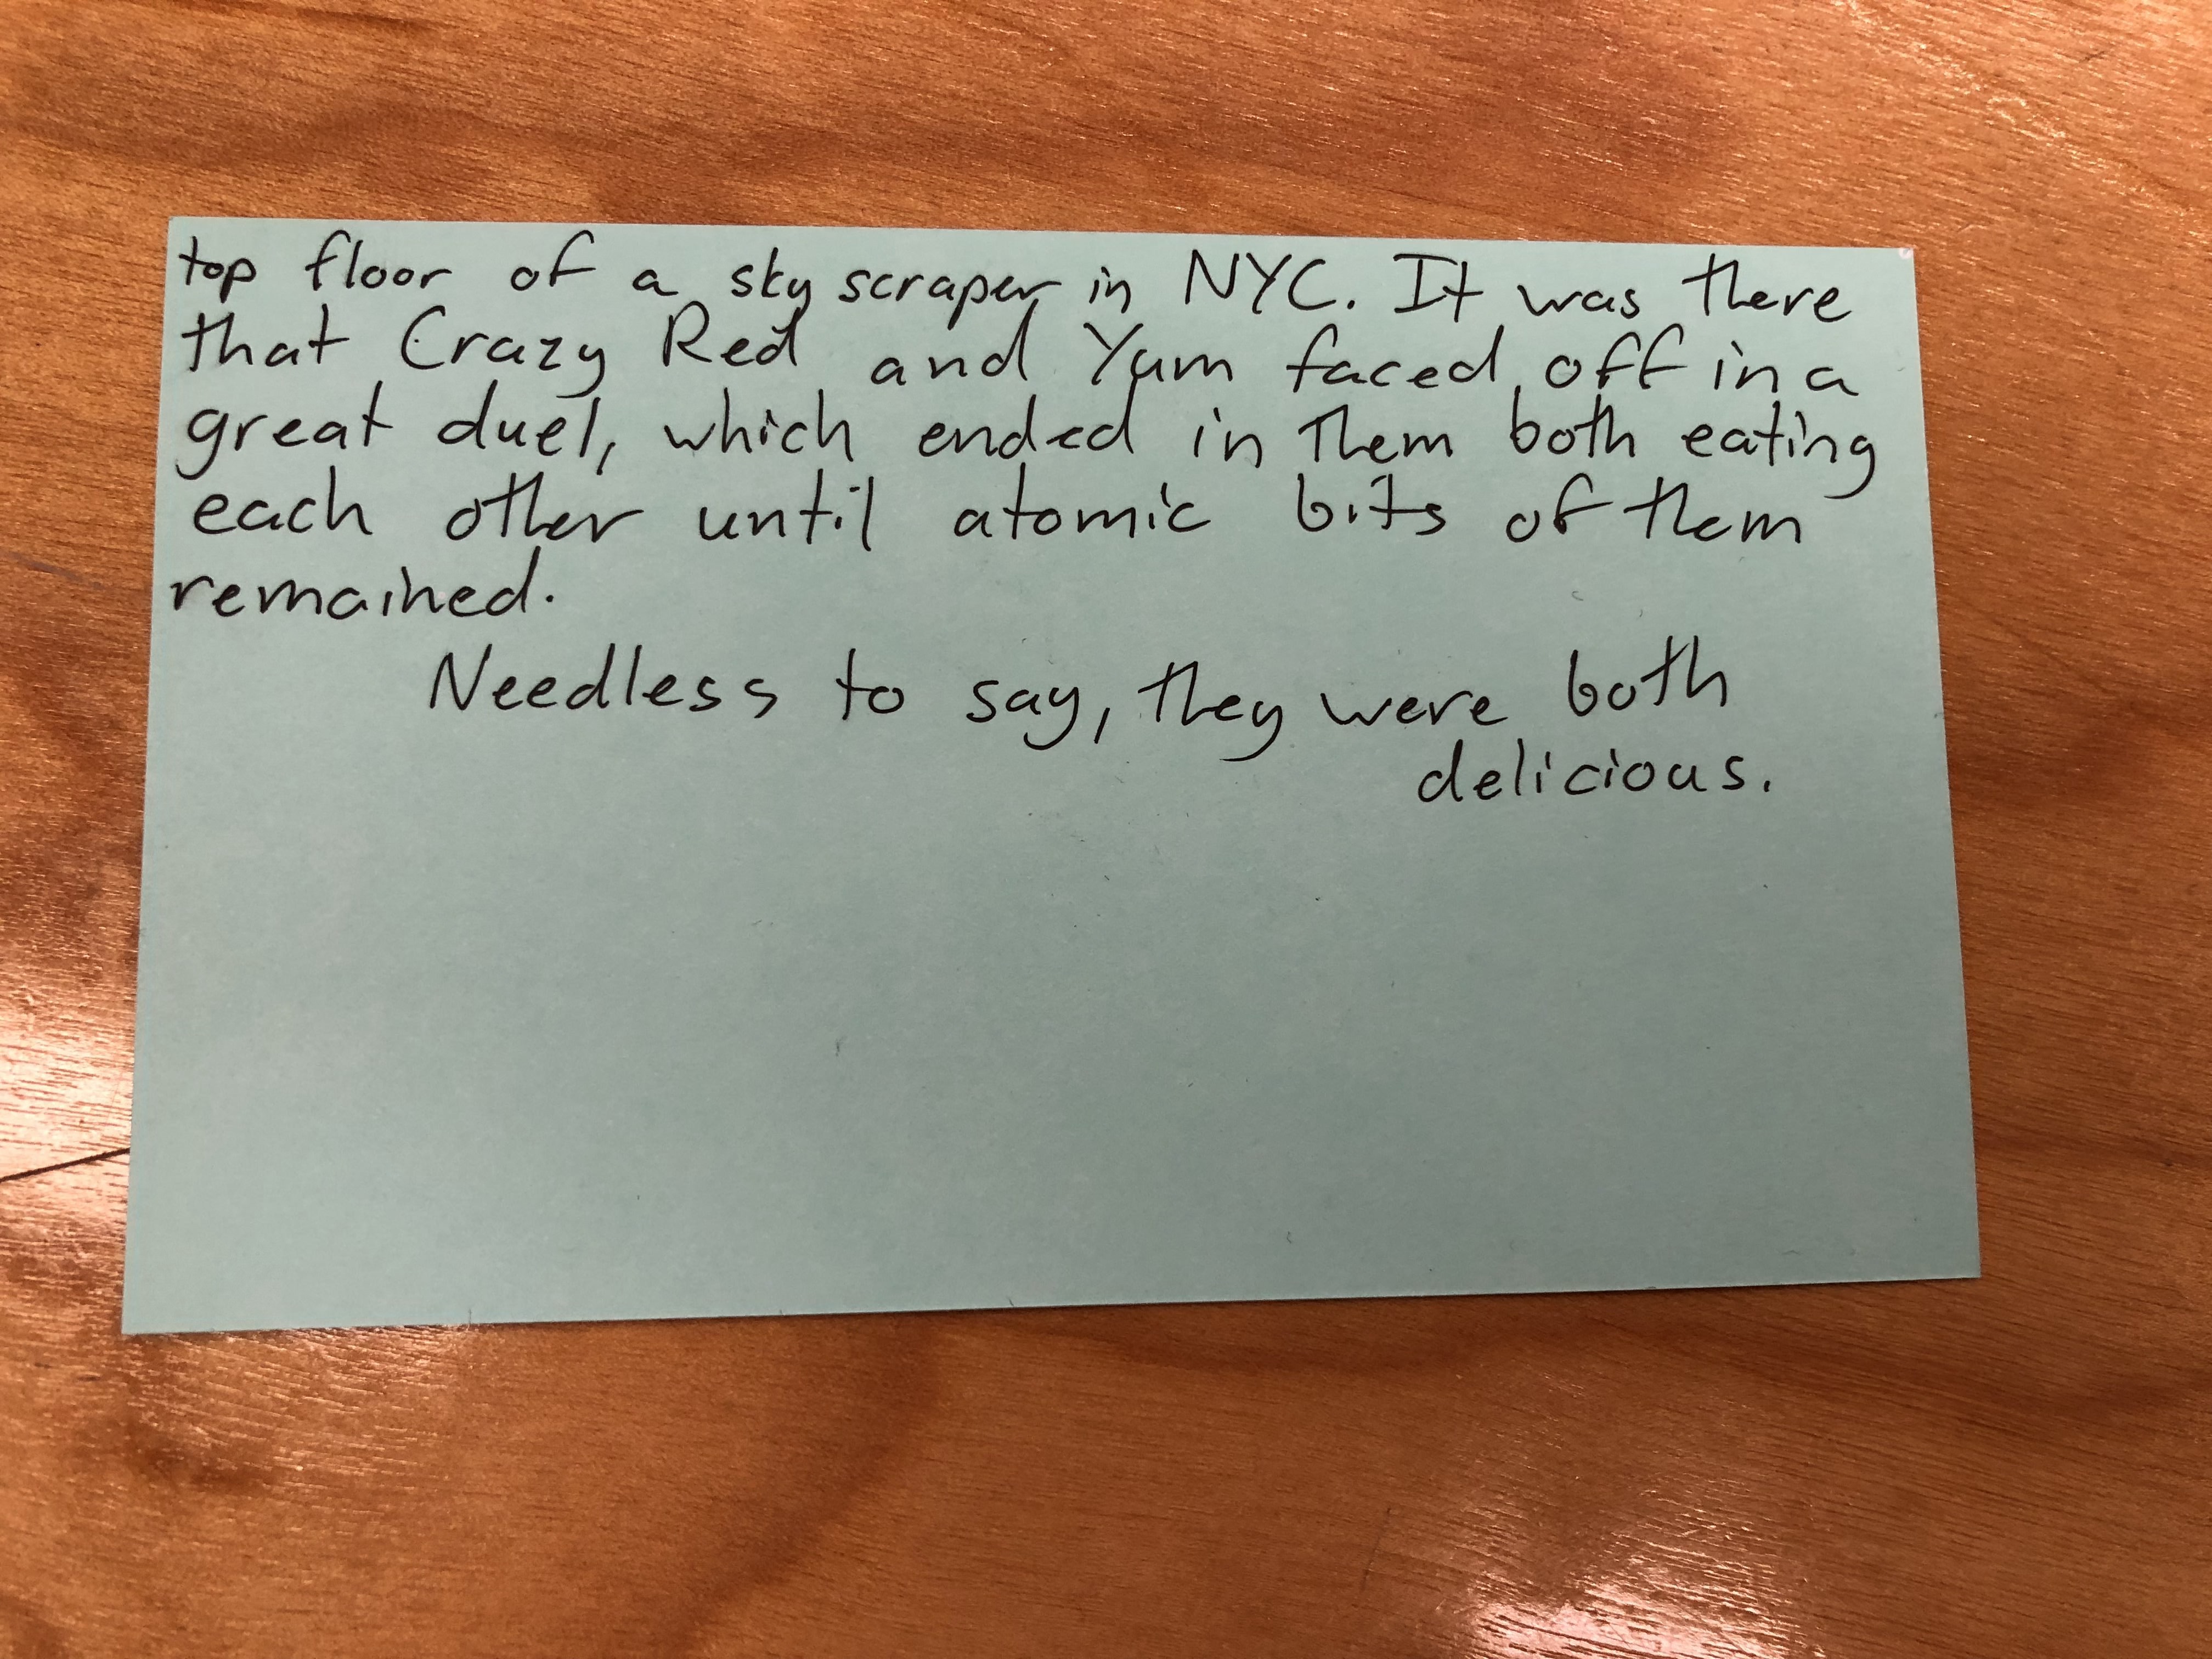 top floor of a sky scraper in NYC. It was there
that Crazy Red and Yum faced off in a
great duel, which ended in them both eating
each other until atomic bits of them
remained.
Needless to say, they were both
delicious.